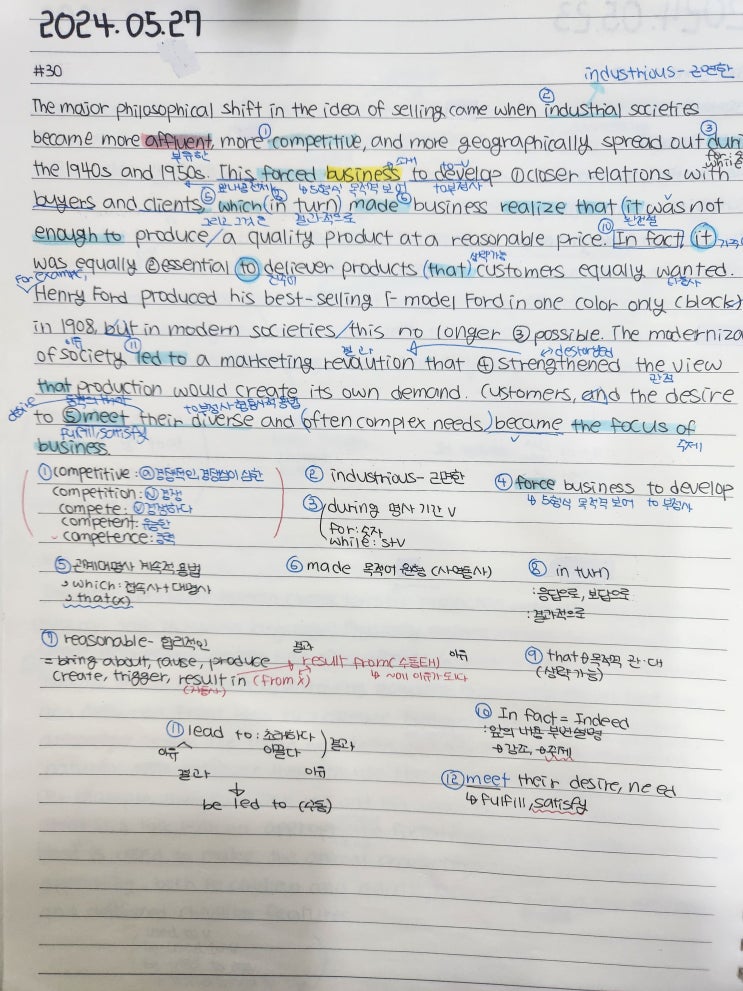 2024.05.27
#30
industrious - 근면한
②
The major philosophical shift in the idea of selling came when industrial societies
became more affluent, more ① competitive, and more geographically spread out ③ duri
부유한
while
the 1940s and 1950s. This forced business to develop ① closer relations with
↳ 5형식 목적어 보어 to부정사
buyers and clients, ⑤ which (in turn) made ⑥ business realize that it was not
그리고 그것은 결과적으로
enough to produce / a quality product at a reasonable price. ⑩ In fact, it
was equally ② essential to deliever products (that) customers equally wanted.
For example,
Henry Ford produced his best-selling T-model Ford in one color only (black)
in 1908, but in modern societies / this no longer ③ possible. The moderniza
이유 ⑪ 결과
of society led to a marketing revaution that ④ strengthened the view
that production would create its own demand. Customers, and the desire
desire
to ⑤ meet their diverse and (often complex needs) became the focus of
fulfill/satisfy 주제
business.
① competitive : ⓐ 경쟁적인, 경쟁심이 강한
competition : ⓝ 경쟁
compete : ⓥ 경쟁하다
competent : 유능한
competence : 능력
② industrious - 근면한
③ during 명사 기간 V
for : 숫자
while : S+V
④ force business to develop
↳ 5형식 목적어 보어 to부정사
⑤ 관계대명사 계속적 용법
, which : 접속사 + 대명사
, that(x)
⑥ made 목적어 원형 (사역동사)
⑧ in turn
: 응답으로, 보답으로
: 결과적으로
⑦ reasonable - 합리적인
= bring about, cause, produce → result from (수동태)
결과 이유
create, trigger, result in (from x) ↳ ~에 이유가 되다
(자동사)
⑨ that 목적격 관·대
(생략가능)
⑩ In fact = Indeed
: 앞의 내용 부연설명
→ 강조, → 주제
⑪ lead to : 초래하다
이끌다 ) 결과
이유
결과 이유
be led to (수동)
⑫ meet their desire, need
↳ fulfill, satisfy